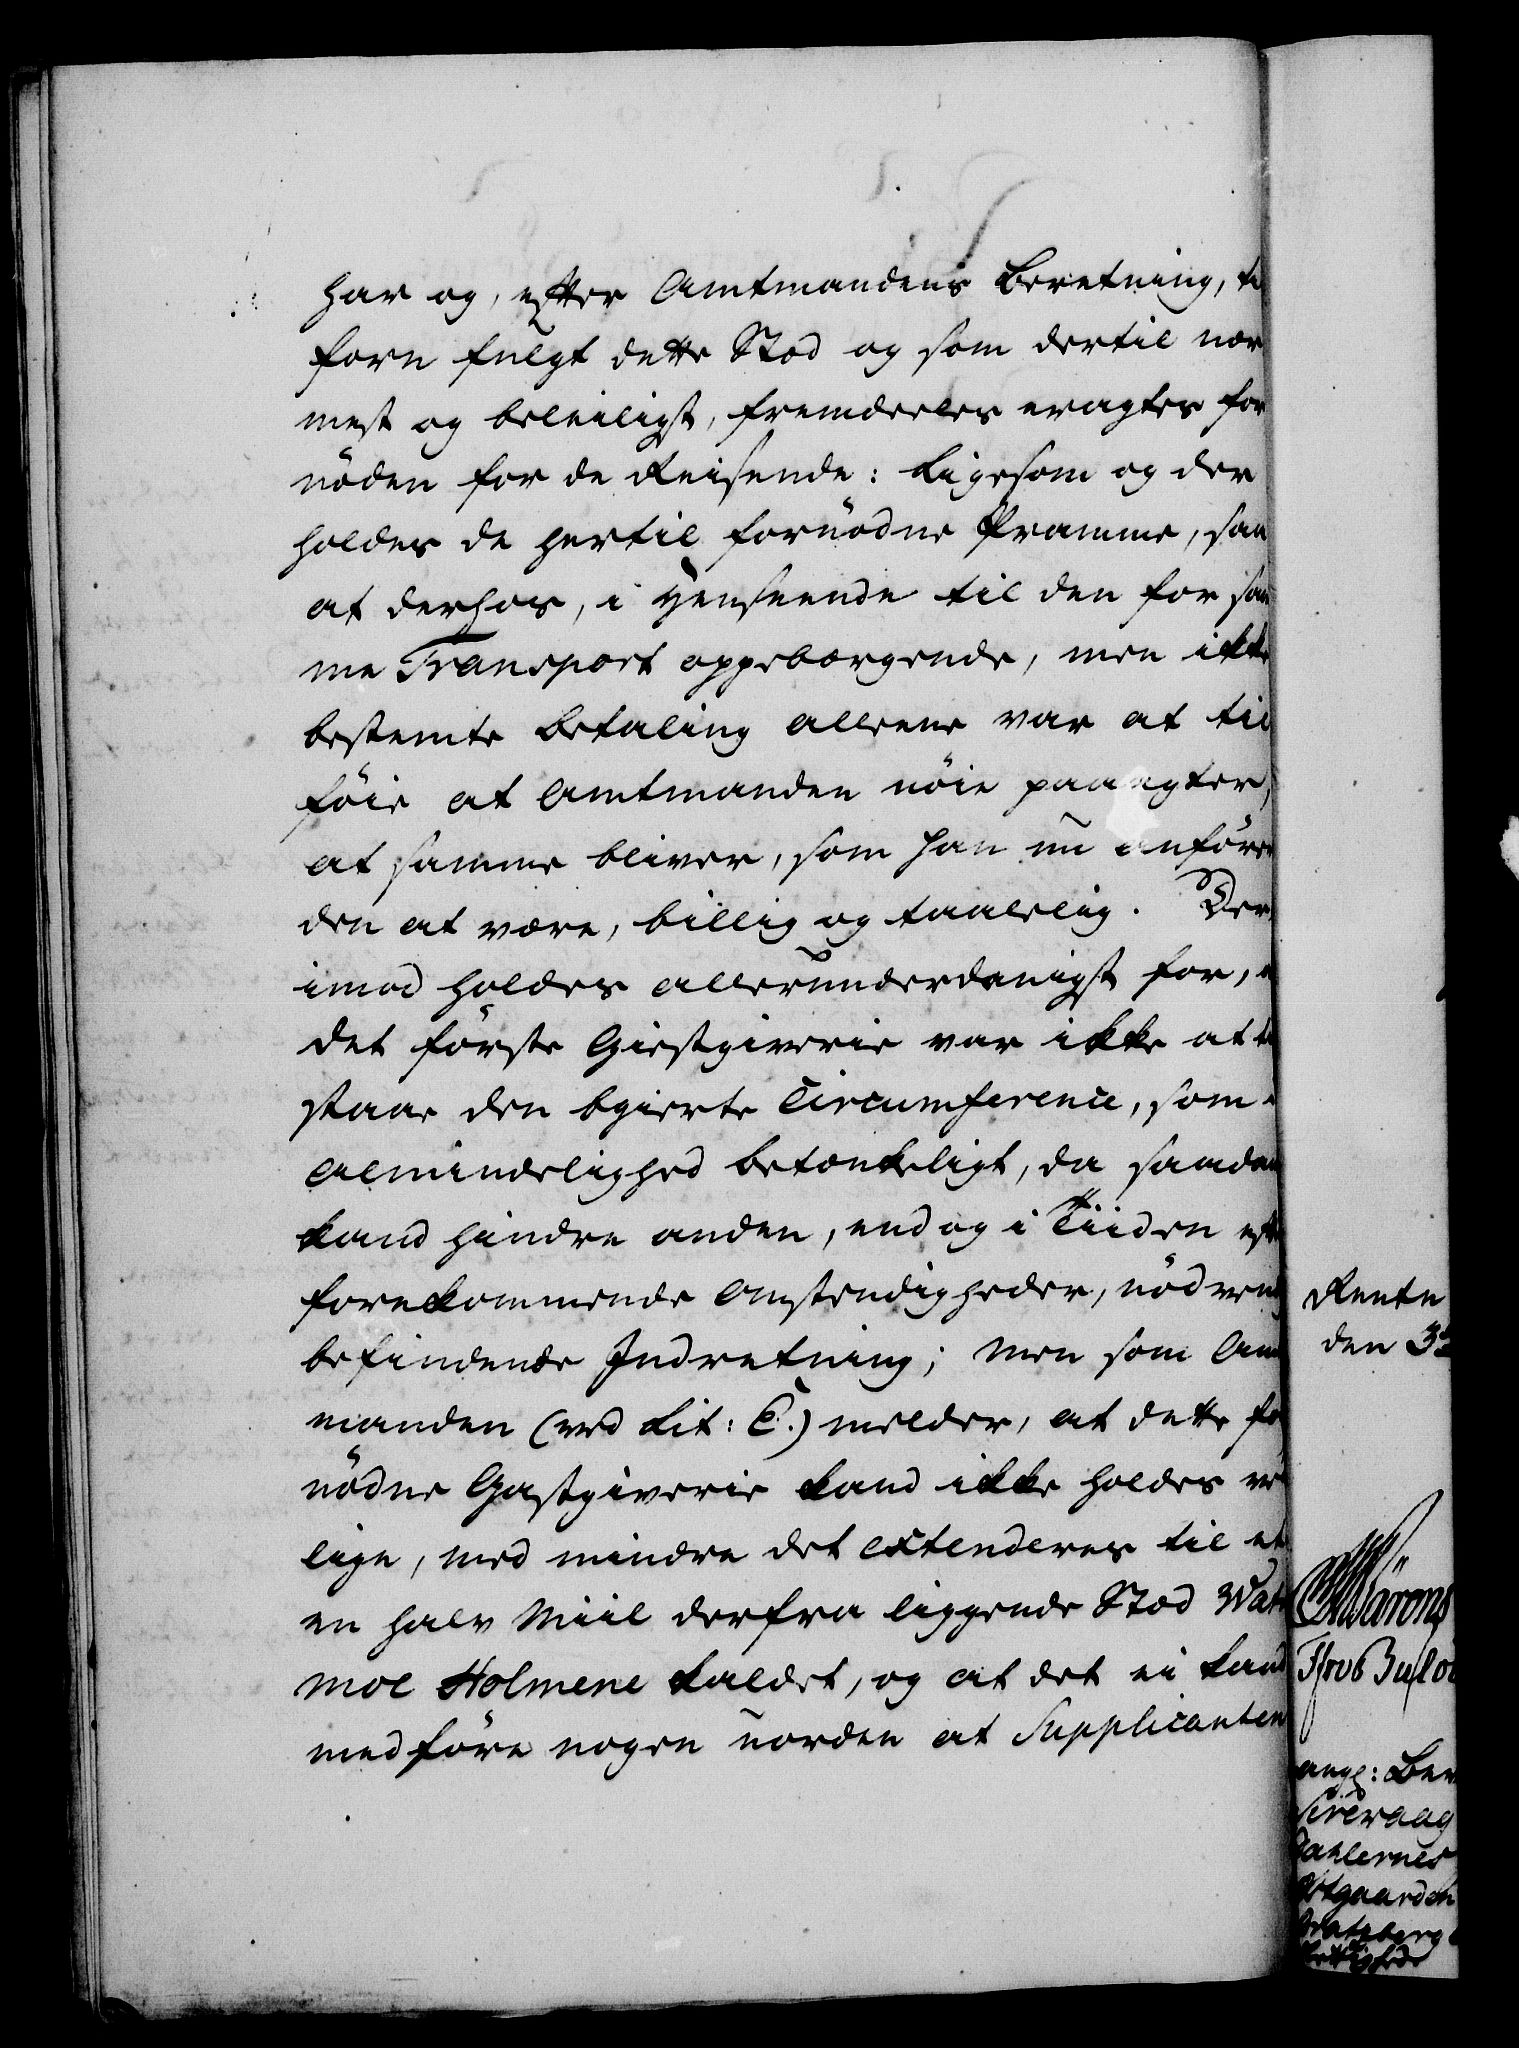 har og, efter Amtmandens Beretning, te
forn fulgt dette Stæd og som dertil nær
mest og beleiligst, fremdeeles eragtes for
nöden for de Reisende: Ligesom og der
holdes de hertil fornödne Pramme, saa
at derhos, i Henseende til den for sam
me Transport oppebærgende, men ikke
bestemte Betaling alleene var at til
föie at Amtmanden nöie paaagter,
at samme bliver, som han nu anförer
den at være, billig og taalelig. Der
imod holdes allerunderdanigst for, a
det förste Giestgiverie var ikke at te
staae den bgierte Circumference, som i
Almindelighed betænkeligt, da saadan
kand hindre anden, endog i Tiiden eft
forekommende Omstendigheder, nödvend
befindende Indretning; men som Am
manden (ved Lit: C.) melder, at dette for
nödne Gastgiverie kand ikke holdes ved
lige, med mindre det extenderes til et
en halv Miil derfra liggende Stæd Wat
moe Holmene kaldet, og at det ei kand
medföre nogen uorden at Supplicanten
Rente
den 3
ang: Ber